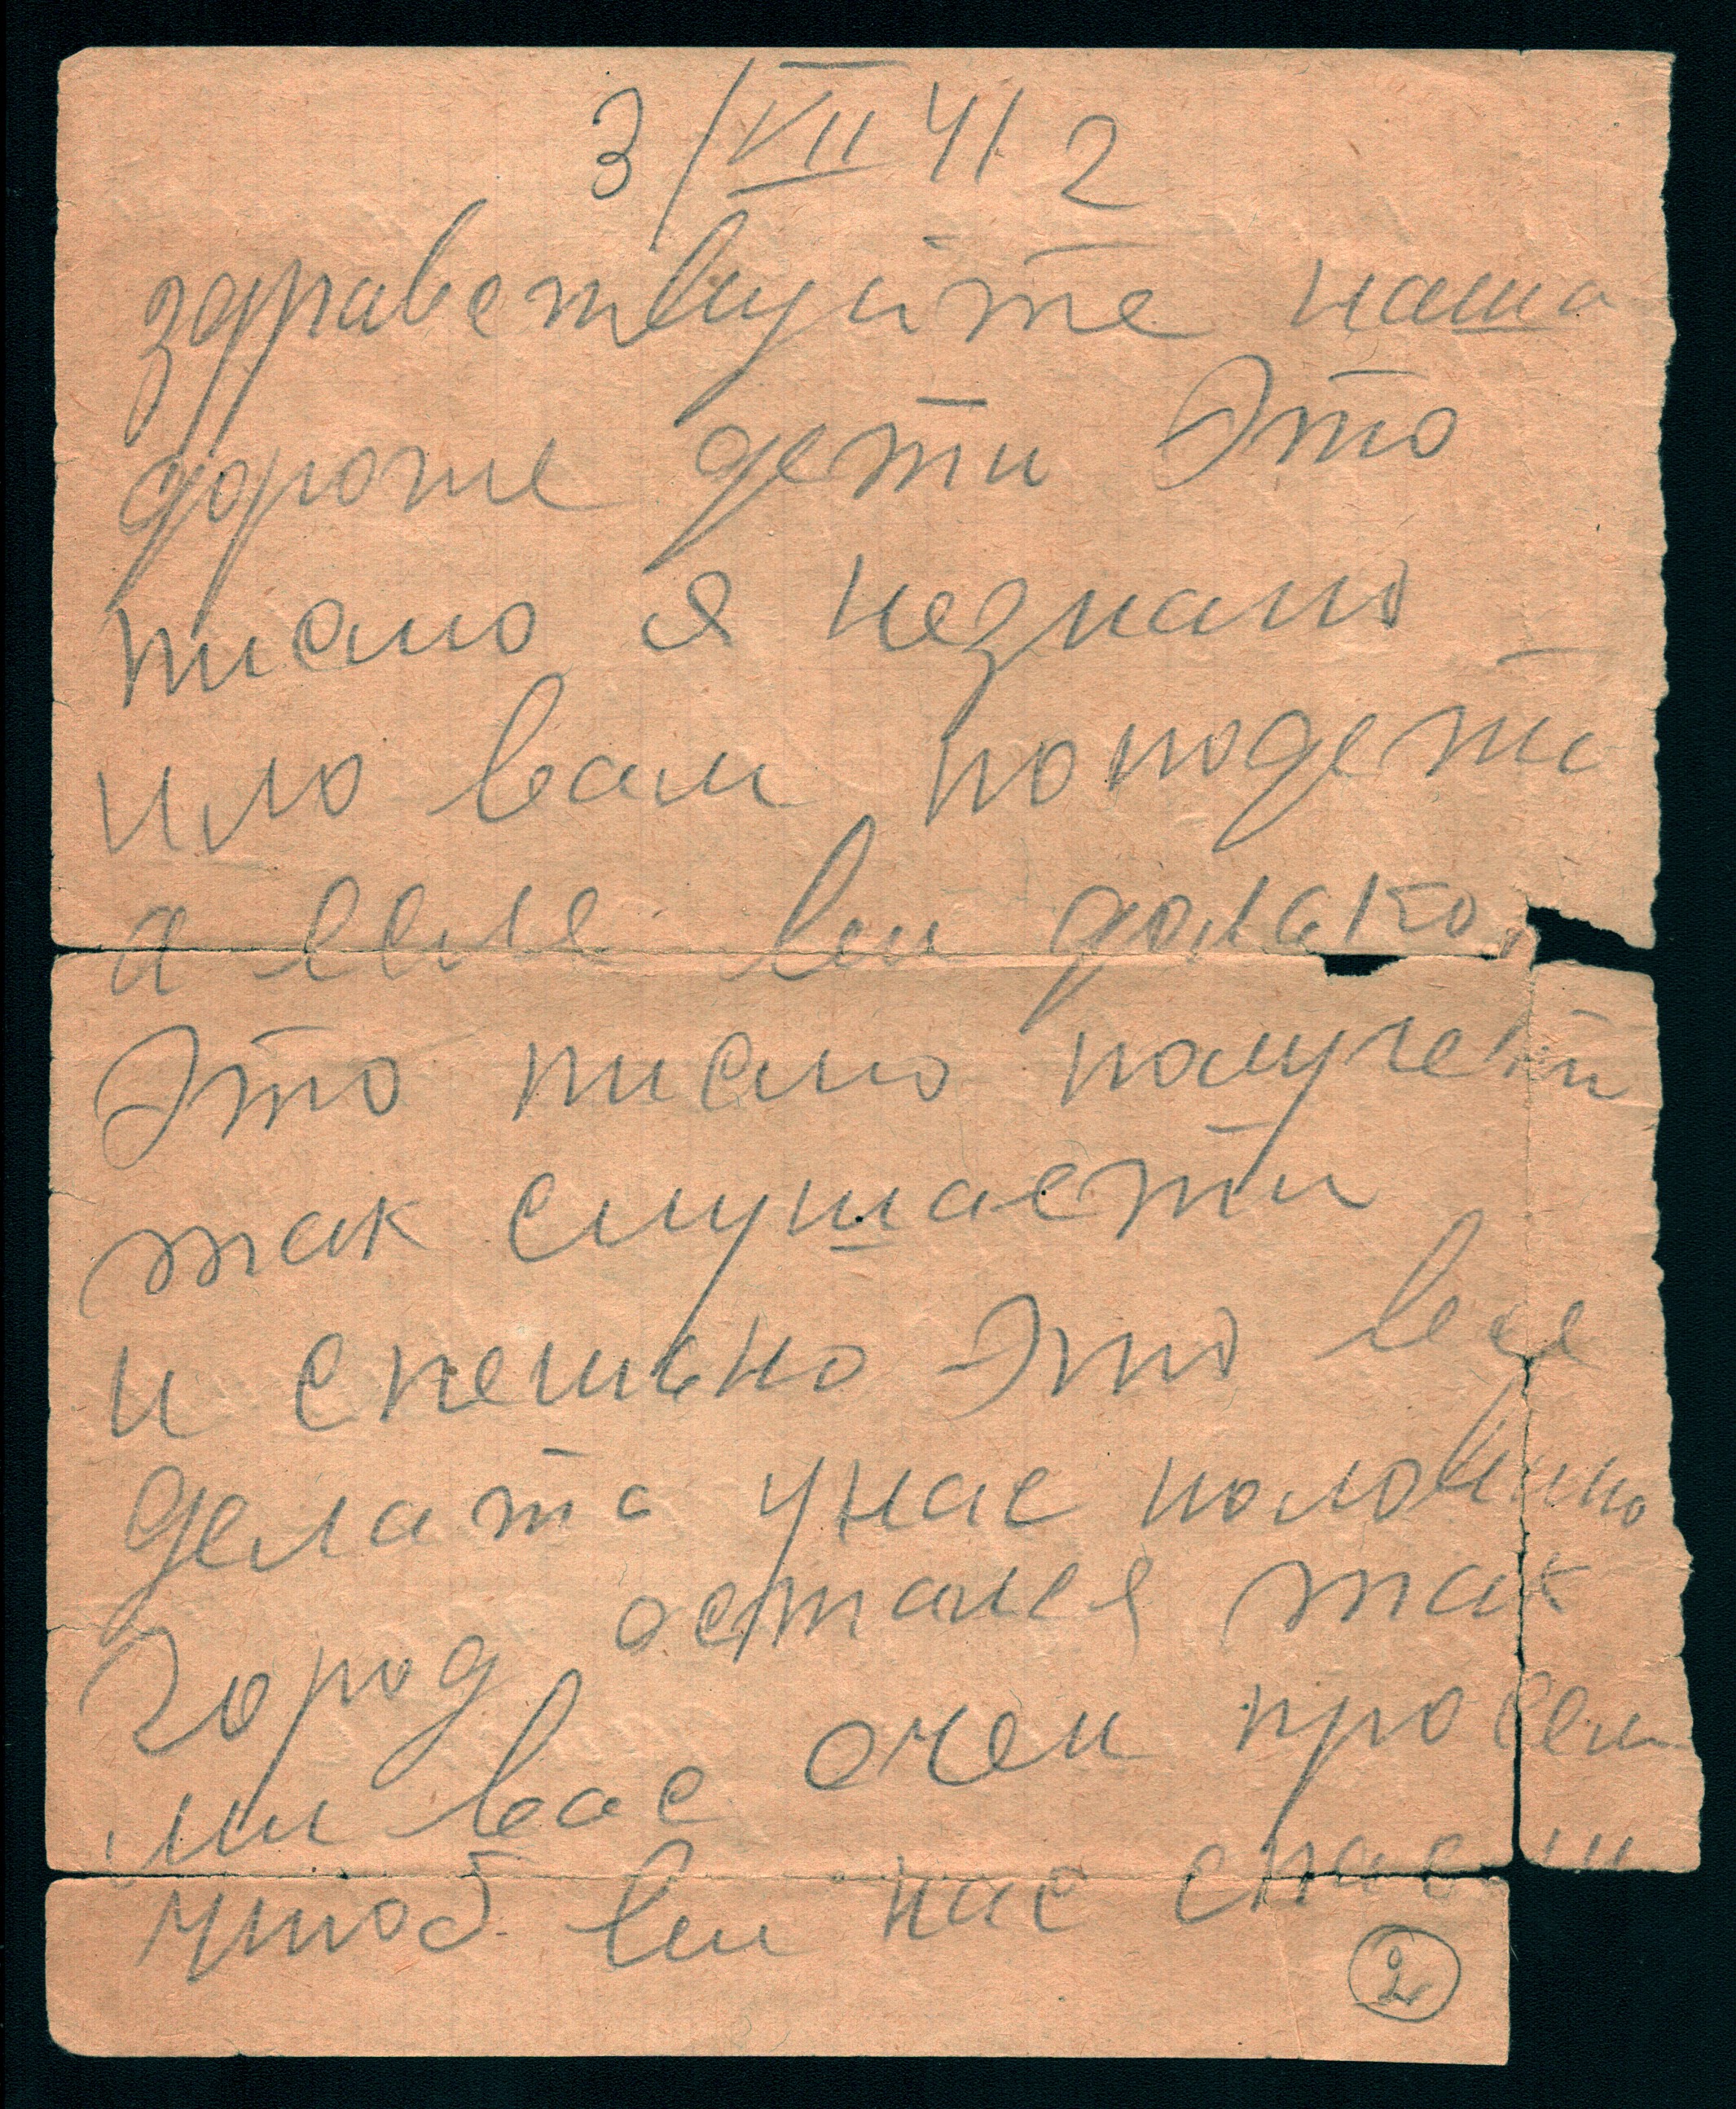 3/VII 41 г
здравствуйте наша
дороже дети Это
писмо я незнаю
или вам поподеть
а если ви долько
Это писмо получети
так слушаети
и спешьно Это все
делать унас половино
Город остался так
ми вас очен просем
чтоб ви нас спасли
2